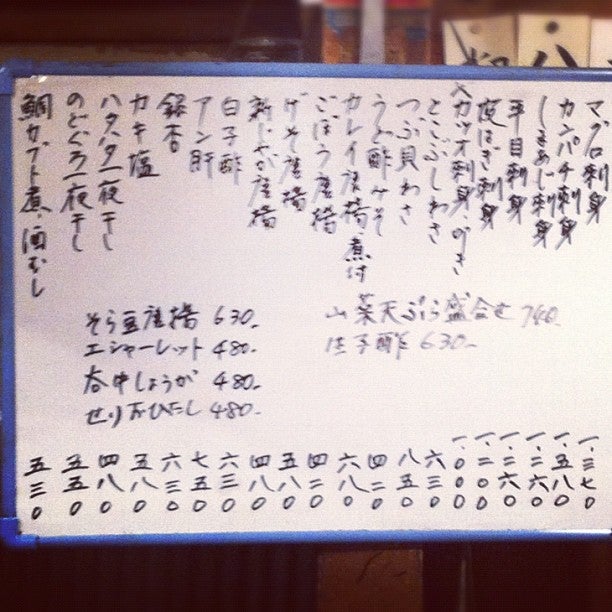 マグロ刺身 一、三七0
カンパチ刺身 一、五八0
しまあじ刺身 一、二六0
平目刺身 一、二六0
皮はぎ刺身 一、二00
カツオ刺身 一、000
とこぶしわさ 六三0
つぶ貝わさ 八五0
うど酢みそ 四二0
カレイ唐揚・煮付 六八0
ごぼう唐揚 四二0
げそ唐揚 五八0
新じゃが唐揚 四八0
白子酢 六三0
アン肝 七五0
銀杏 六三0
カキ塩 五八0
ハタハタ一夜干し 四八0
のどぐろ一夜干し 五五0
鯛カブト煮・酒むし 五三0
山菜天ぷら盛合せ 740-
生子酢 630-
そら豆唐揚 630-
エシャーレット 480-
谷中しょうが 480-
せりおひたし 480-